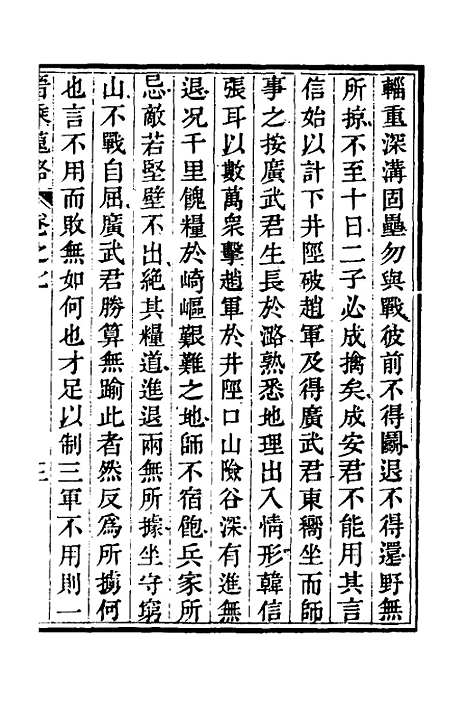 輜重深溝固壘勿與戰彼前不得鬭退不得還野無
所掠不至十日二子必成擒矣成安君不能用其言
信始以計下井陘破趙軍及得廣武君東嚮坐而師
事之按廣武君生長於潞熟悉地理出入情形韓信
張耳以數萬衆擊趙軍於井陘口山險谷深有進無
退况千里餽糧於崎嶇艱難之地師不宿飽兵家所
忌敵若堅壁不出絶其糧道進退兩無所據坐守窮
山不戰自屈廣武君勝算無踰此者然反爲所擒何
也言不用而敗無如何也才足以制三軍不用則一
晉乘蒐畧 卷之七 三